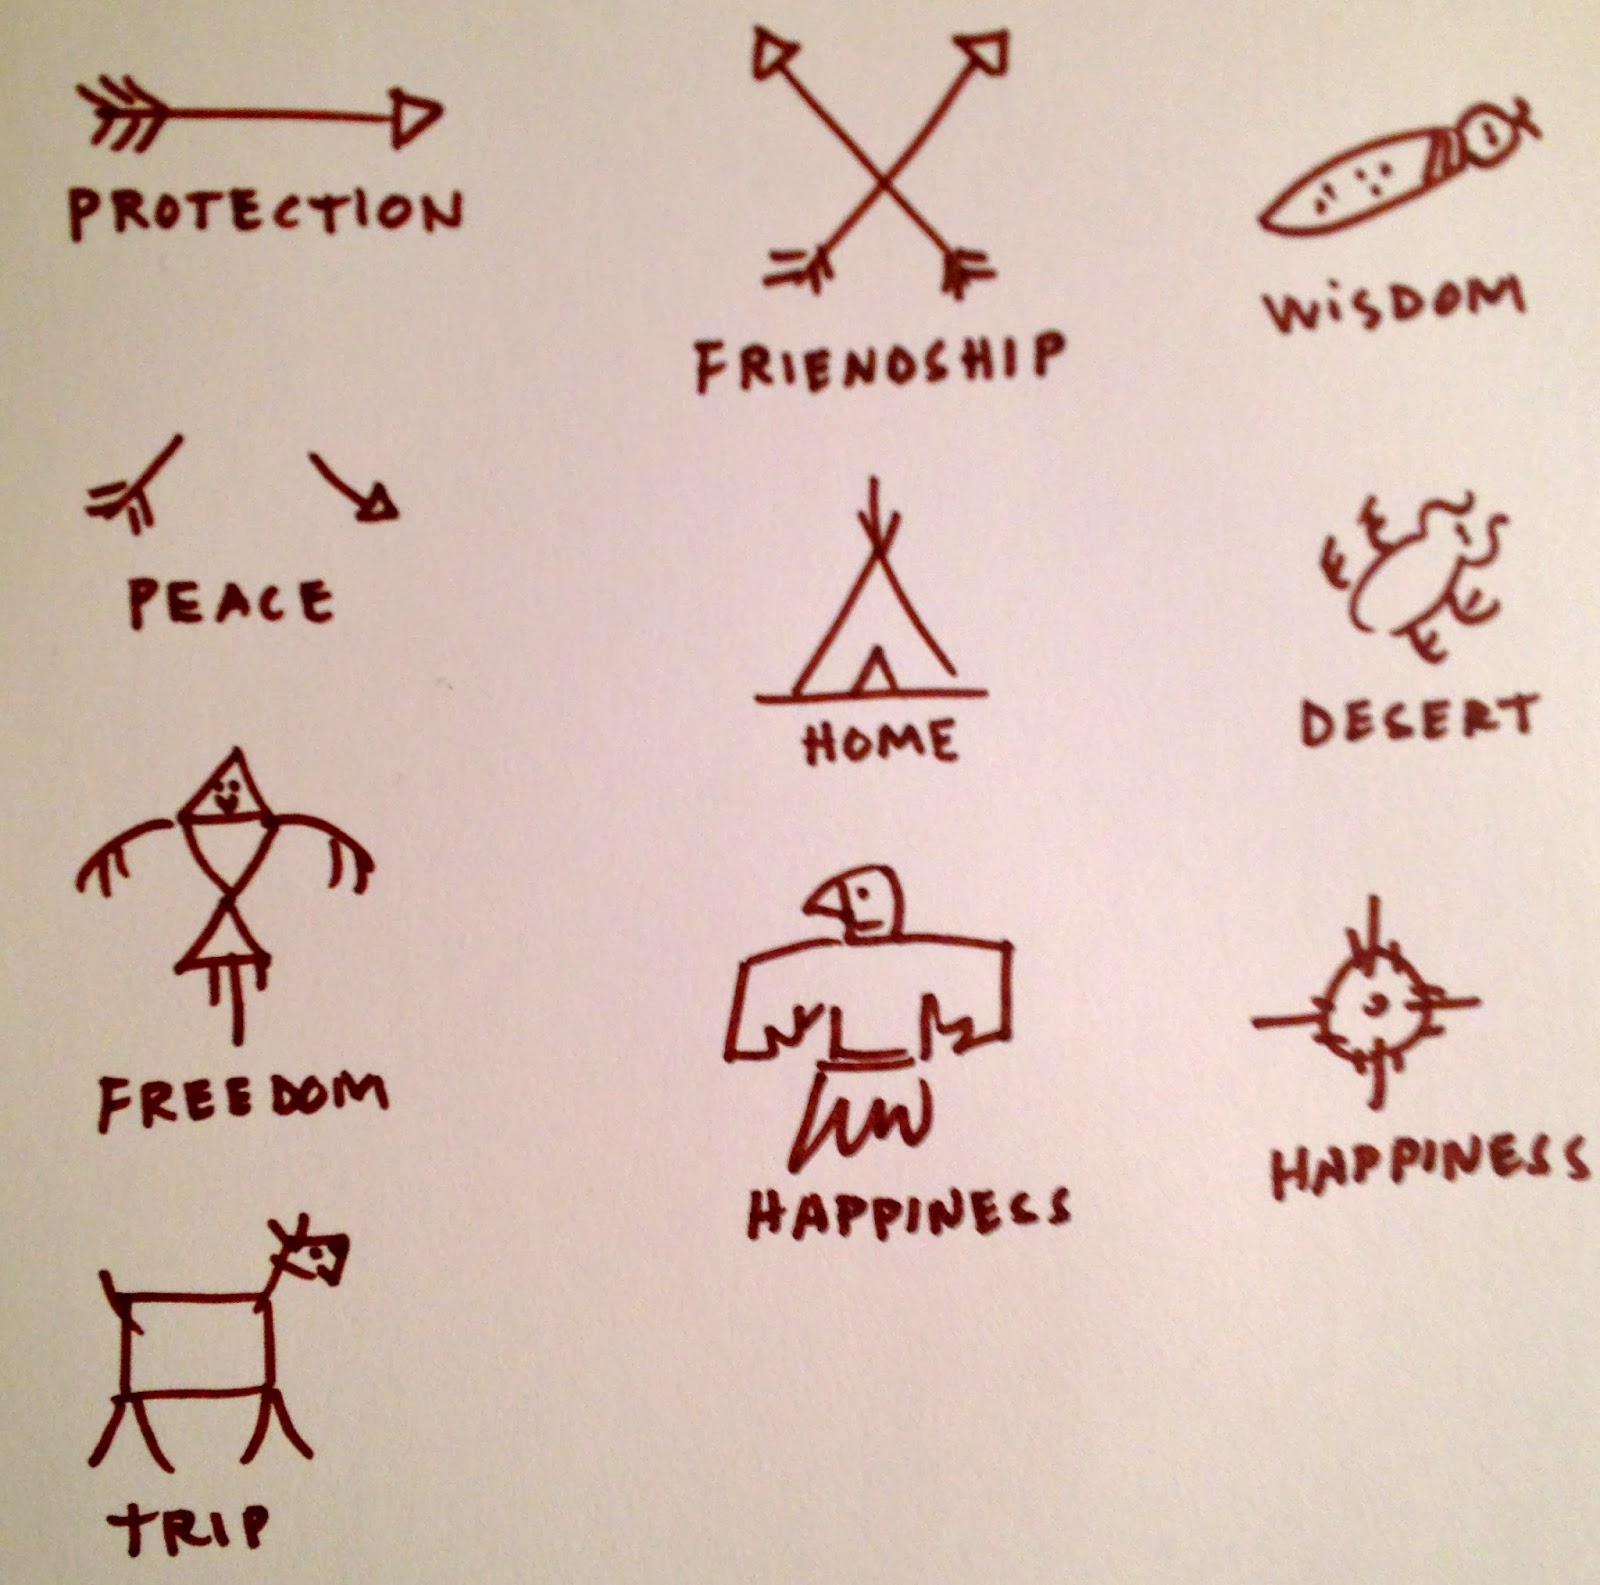 PROTECTION
FRIENDSHIP
WISDOM
PEACE
HOME
DESERT
FREEDOM
HAPPINESS
HAPPINESS
TRIP